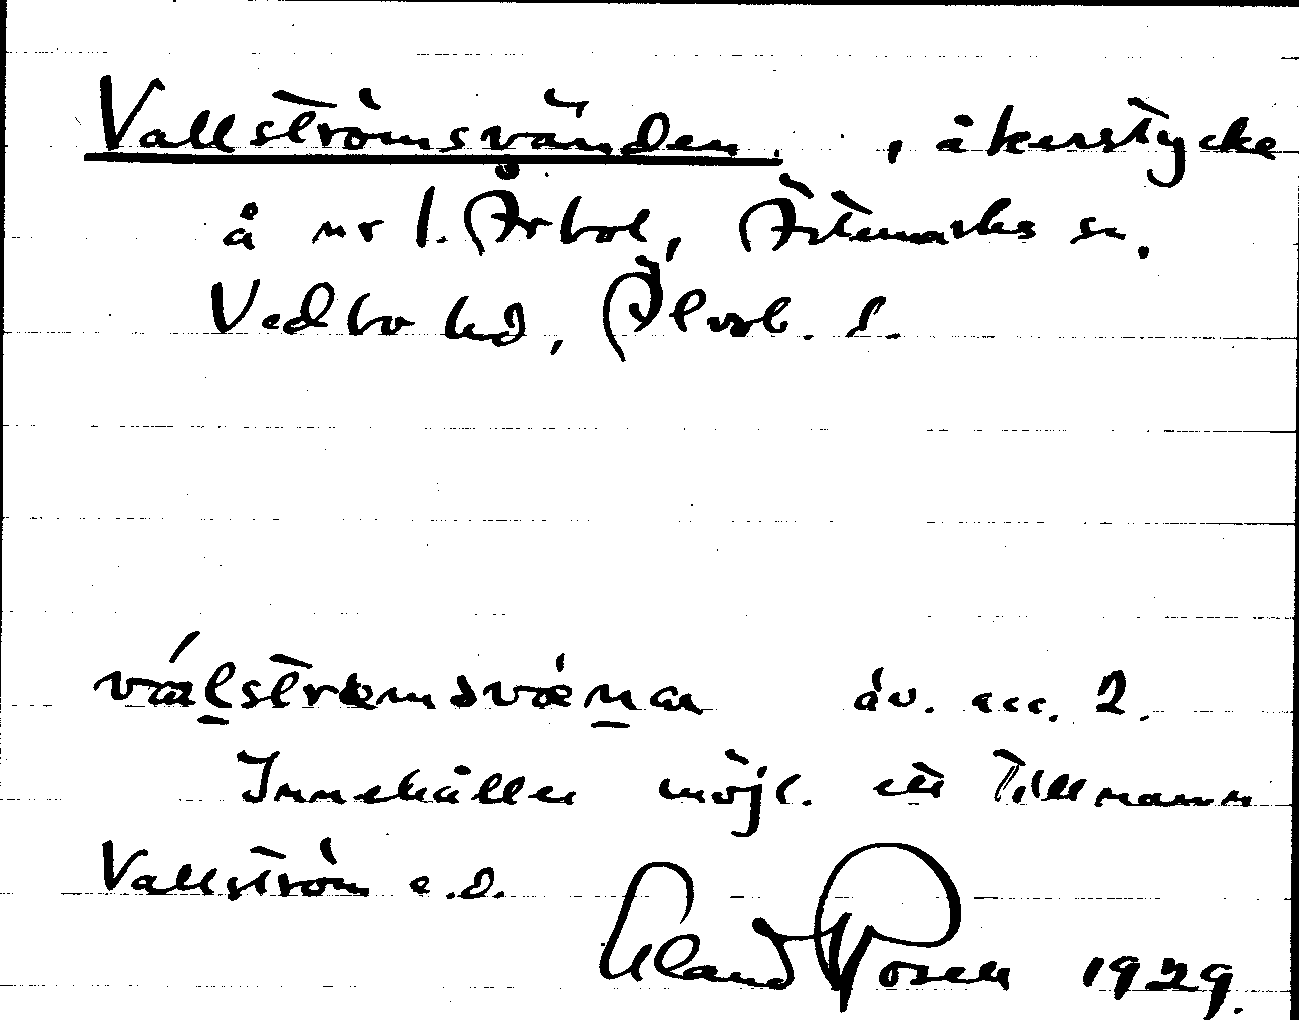 Vallströmsvänden, åkerstycke
å nr 1. Årbol, Ärtemarks sn.
Vedbo hd, Älvsb. l.
vál̲strœmsvœ́n̲an äv. acc. 2.
Innehåller möjl. ett tillnamn
Vallström e.d.
Claus Rosén 1929.